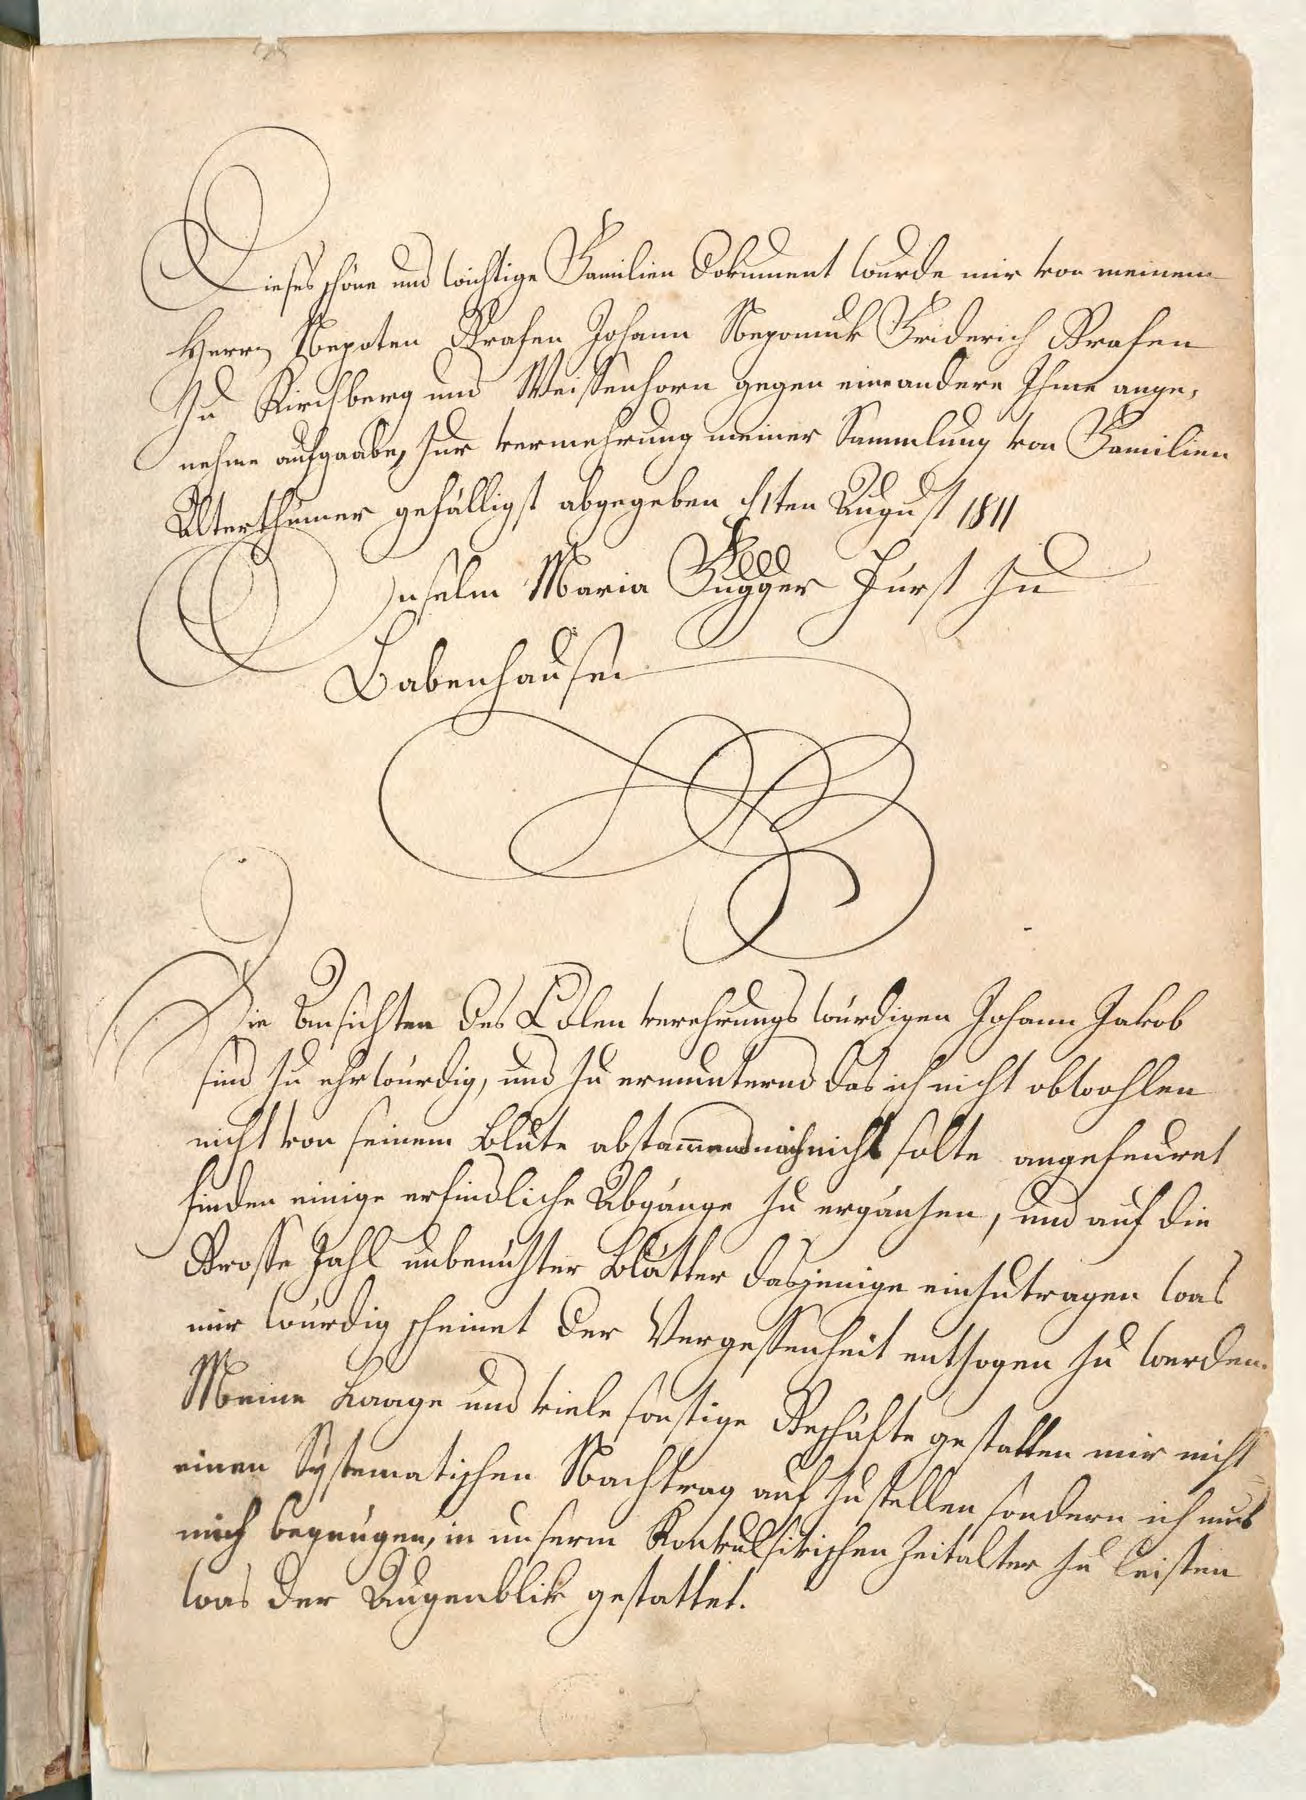 Dieses schöne und wichtige Familien Dokument wurde mir von meinem
Herrn Nepoten Grafen Johann Nepomuk Friderich Grafen
zu Kirchberg und Weissenhorn gegen eine andere Ihme ange,
nehme aufgaabe, zur vermehrung meiner Sammlung von Familien
Alterthümer gefälligst abgegeben ten August 1811
Anselm Maria Fugger Fürst zu
Babenhausen
Die Ansichten des Edlen verehrungswürdigen Johann Jakob
sind zu ehrwürdig, und zu ermunternd das ich nicht obwohlen
nicht von seinem Blute abstam̅end mich nicht solte angefeuret
finden einige erfindliche Abgänge zu ergänzen, und auf die
Grosse Zahl unbenutzter Blätter dasjenige einzutragen was
mir würdig scheinet der Vergessenheit entzogen zu werden.
Meine Laage und viele sonstige Geschäfte gestatten mir nicht
einen Systematischen Nachtrag auf zu stellen sondern ich mus
mich begnügen, in unserm Konvulsivischen Zeitalter zu leisten
was der Augenblik gestattet.